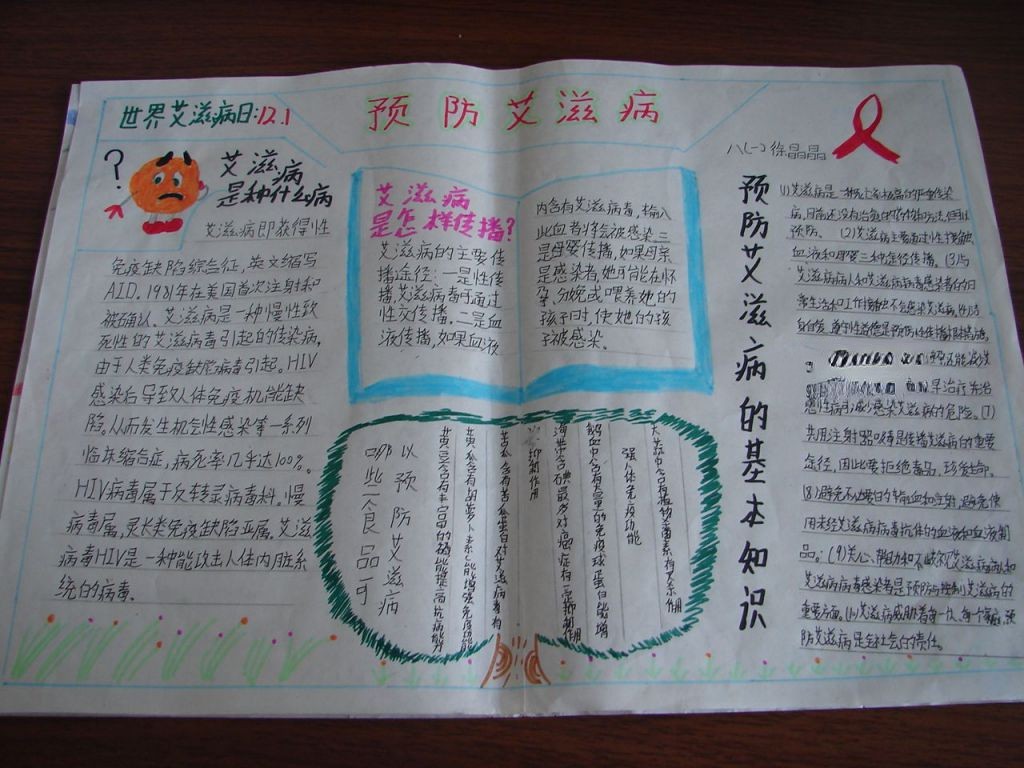 世界艾滋病日:12.1
预防艾滋病
八(一)徐晶晶
?
艾滋病
是种什么病
艾滋病即获得性
免疫缺陷综合征,英文缩写
AID。1981年在美国首次注射和
被确认。艾滋病是一种慢性致
死性的艾滋病毒引起的传染病,
由于人类免疫缺陷病毒引起。HIV
感染后导致人体免疫机能缺
陷。从而发生机会性感染等一系列
临床缩合症,病死率几乎达100%。
HIV病毒属于反转录病毒科。慢
病毒属,灵长类免疫缺陷亚属。艾滋
病毒HIV是一种能攻击人体内脏系
统的病毒。
艾滋病
是怎样传播?
艾滋病的主要传
播途径:一是性传
播,艾滋病毒可通过
性交传播。二是血
液传播,如果血液
内含有艾滋病毒,输入
此血者将会被感染三
是母婴传播,如果母亲
是感染者,她可能在怀
孕、分娩或喂养她的
孩子时,使她的孩
子被感染。
大蒜中含有植物
强人体免疫功能
制血中含有大量的免疫球蛋白能增
海带含碘最多对癌症有一定抑制作用
抑制作用
苦瓜含有苦瓜蛋白对艾滋病毒有
黄瓜含有胡萝卜素能增强免疫功能
黄豆含有丰富的硒能提高抗病能力
以预防艾滋病
哪些食品可
预防艾滋病的基本知识
病,目前还没有治愈的药物和方法,但可以
预防。(2)艾滋病主要通过性接触
血液和母婴三种途径传播。(3)与
艾滋病病人和艾滋病病毒感染者的日
常生活和工作接触不会感染艾滋病。(4)洁
早治疗并治
愈性病可减少感染艾滋病的危险。(7)
共用注射器吸毒是传播艾滋病的重要
途径,因此要拒绝毒品,珍爱生命。
(8)避免不必要的输血和注射,避免使
用未经艾滋病病毒抗体的血液和血液制
品。(9)关心、帮助和不歧视艾滋病病人和
艾滋病病毒感染者是预防与控制艾滋病的
重要方面。(10)艾滋病威胁着每一个人、每个家庭,预
防艾滋病是全社会的责任。